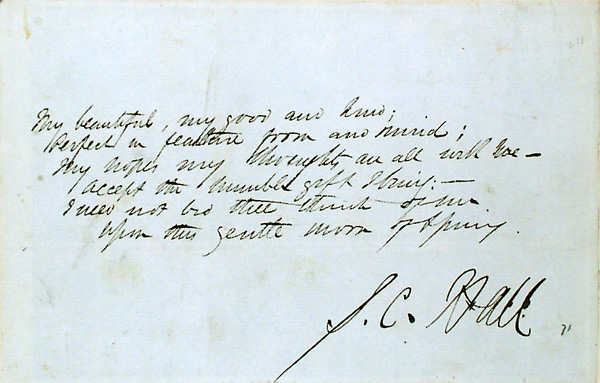 My beautiful, my good and kind;
Perfect in feature form and mind;
My hopes my thoughts are all with thee —
accept the humble gift I bring: —
I need not bid thee think of me
Upon this gentle morn of Spring.
S. C. Hall
71